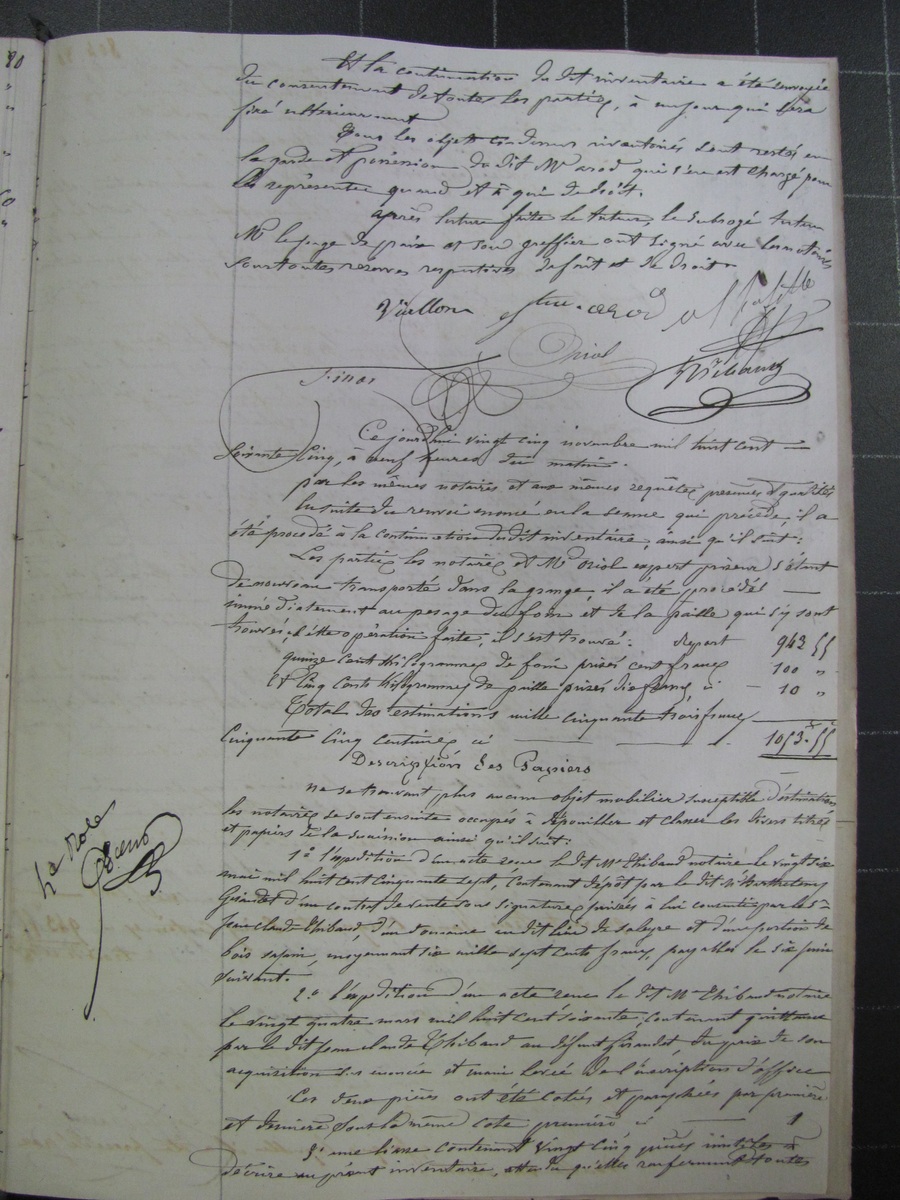 80
Et la continuation du dit inventaire a été renvoyée
du consentement de toutes les parties, à un jour qui sera
fixé ultérieurement
Tous les objets ci dessus inventoriés sont restés en
la garde et possession du dit Mr arod qui s'en est chargé pour
les représenter quand et à qui de droit.
après lecture faite le tuteur, le subrogé tuteur
Mr le juge de paix et son greffier ont signé avec les notaires
sous toutes réserves respectives de fait et de droit.
Viallon arod
Oriol Thibaud
Ce jourd'hui vingt cinq novembre mil huit cent
soixante cinq, à neuf heures du matin.
par les mêmes notaires et aux mêmes requêtes, présences et qualités
En suite du renvoi énoncé en la séance qui précède, il a
été procédé à la continuation du dit inventaire, ainsi qu'il suit:
Les parties les notaires et Mr Oriol expert priseur s'étant
de nouveau transportés dans la grange, il a été procédé
immédiatement au pesage du foin et de la paille qui s'y sont
trouvés, cette opération faite, il s'est trouvé: report 943 55
quinze cents kilogrammes de foin prisés cent francs 100 "
Et cinq cents kilogrammes de paille prisés dix francs, ci 10 "
Total des estimations mille cinquante trois francs
cinquante cinq centimes ci 1053.55
Description des Papiers
ne se trouvant plus aucun objet mobilier susceptible d'estimation
les notaires se sont ensuite occupés à dépouiller et classer les divers titres
et papiers de la succession ainsi qu'il suit:
1o l'expédition d'un acte reçu le dit Me Thibaud notaire le vingt six
mai mil huit cent cinquante sept, contenant dépôt par le dit Mr Barthelemy
Girardet d'un contrat de vente sous signatures privées à lui consentie par le Sr
Jean Claude Thibaud, d'un domaine au dit lieu de et d'une portion de
bois sapin, moyennant six mille sept cents francs, payables le six juin
suivant.
2o l'expédition d'un acte reçu le dit Me Thibaud notaire
le vingt quatre mars mil huit cent soixante, contenant quittance
par le dit Jean Claude Thibaud au défunt Girardet, du prix de son
acquisition sus énoncée et main levée de l'inscription d'office
Ces deux pièces ont été cotées et paraphées par première
et dernière sous la même cote première ci 1
3o une liasse contenant vingt cinq pièces inutiles à
décrire au présent inventaire, attendu qu'elles renferment toutes
4e Role